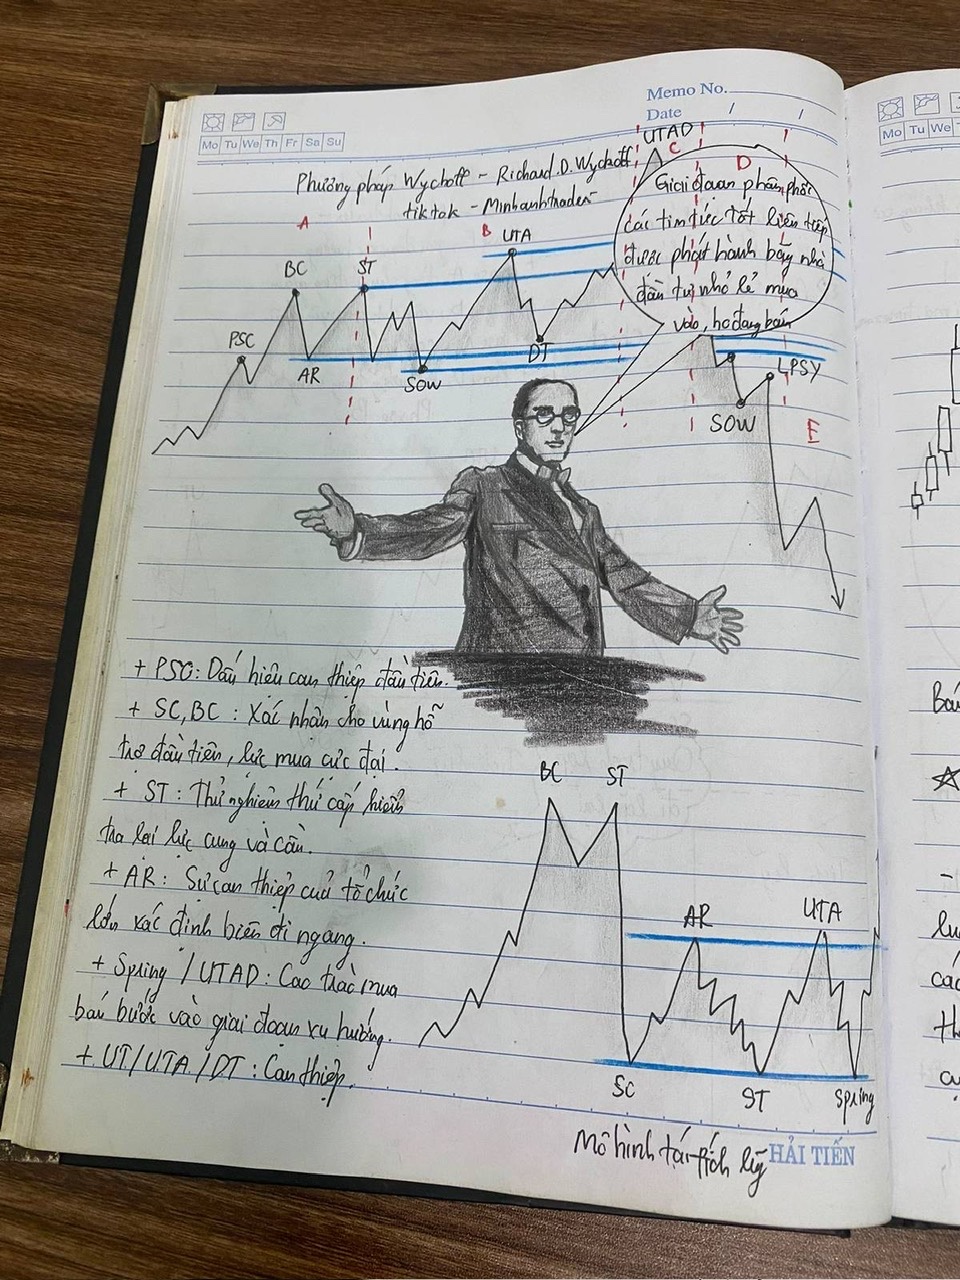 Memo No.
Date / /
Mo Tu We Th Fr Sa Su
Mo Tu We
Phương pháp Wyckoff - Richard.D.Wyckoff
tiktok - Minhanhtrader
UTAD
A
B
C
D
E
PSC
BC
AR
ST
SOW
UTA
DT
SOW
LPSY
Giai đoạn phân phối
các tim tức tốt liên tiếp
được phát hành bẫy nhà
đầu tư nhỏ lẻ mua
vào, họ đang bán
+ PSC: Dấu hiệu can thiệp đầu tiên.
+ SC, BC : Xác nhận cho vùng hỗ
trợ đầu tiên, lực mua cực đại.
+ ST : Thử nghiệm thứ cấp kiểm
tra lại lực cung và cầu.
+ AR : Sự can thiệp cuả tổ chức
lớn xác định biên đi ngang.
+ Spring / UTAD : Cao trào mua
bán bước vào giai đoạn xu hướng.
+ UT/UTA/DT : Can thiệp.
BC
ST
AR
UTA
SC
ST
Spring
Mô hình tái tích lũy
HẢI TIẾN